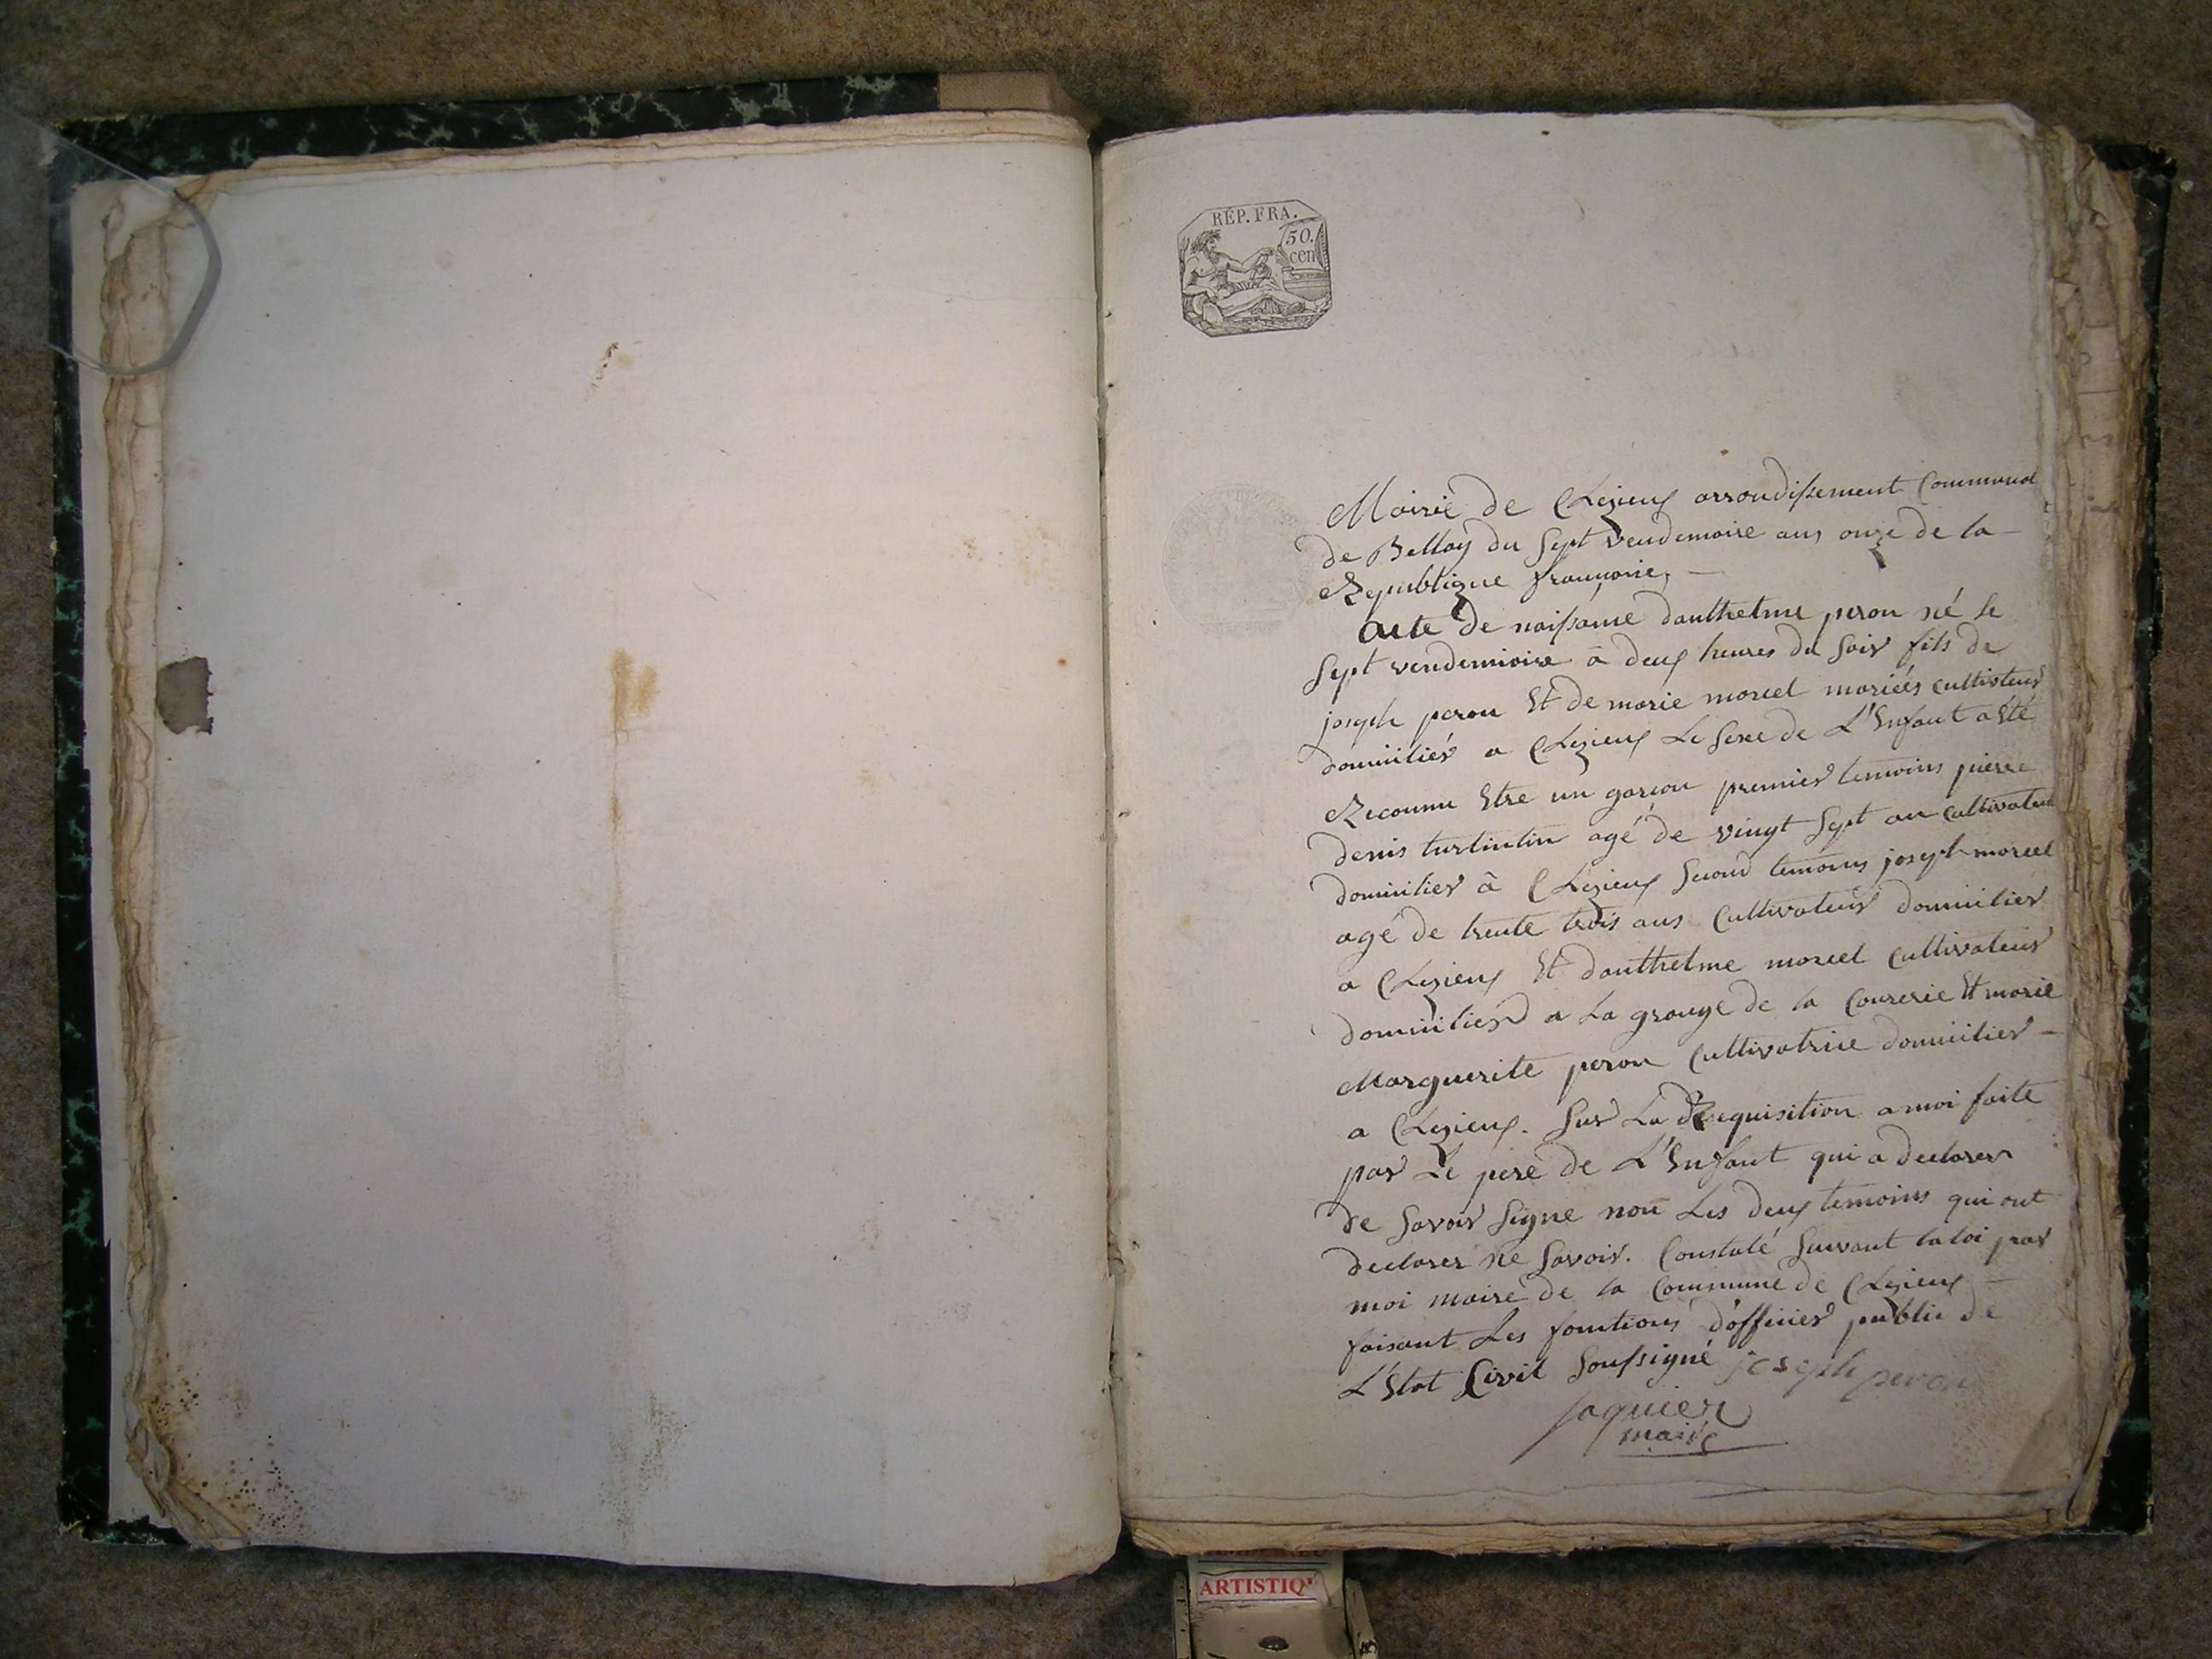 RÉP. FRA.
50.
cen
Mairie de Chezieux arrondissement Communal
de Bellay du sept vendemaire ans onze de la
Republique françoise,
Acte de naissance d'anthelme peron né le
sept vendemiaire à deux heures du soir fils de
joseph peron Et de marie morcel mariées cultivateur
domiciliés a Chezieux Le sexe de L'Enfant a Eté
Reconnu Etre un garcon premier temoins pierre
denis turtintin agé de vingt sept an cultivateur
domicilier à Chezieux second temoins joseph morcel
agé de trente trois ans Cultivateur domicilier
a Chezieux Et d'anthelme morcel Cultivateur
domicilier a La grange de la Courerie Et marie
Marguerite peron Cultivatrice domicilier
a Chezieux. Sur La Requisition a moi faite
par Le pere de L'Enfant qui a declarer
de savoir signe non Les deux temoins qui ont
declarer ne savoir. Constaté suivant la loi par
moi maire de la Commune de Chezieux
faisant Les fonctions d'officier public de
L'Etat Civil soussigné joseph peron
jaquier
maire
ARTISTIQ